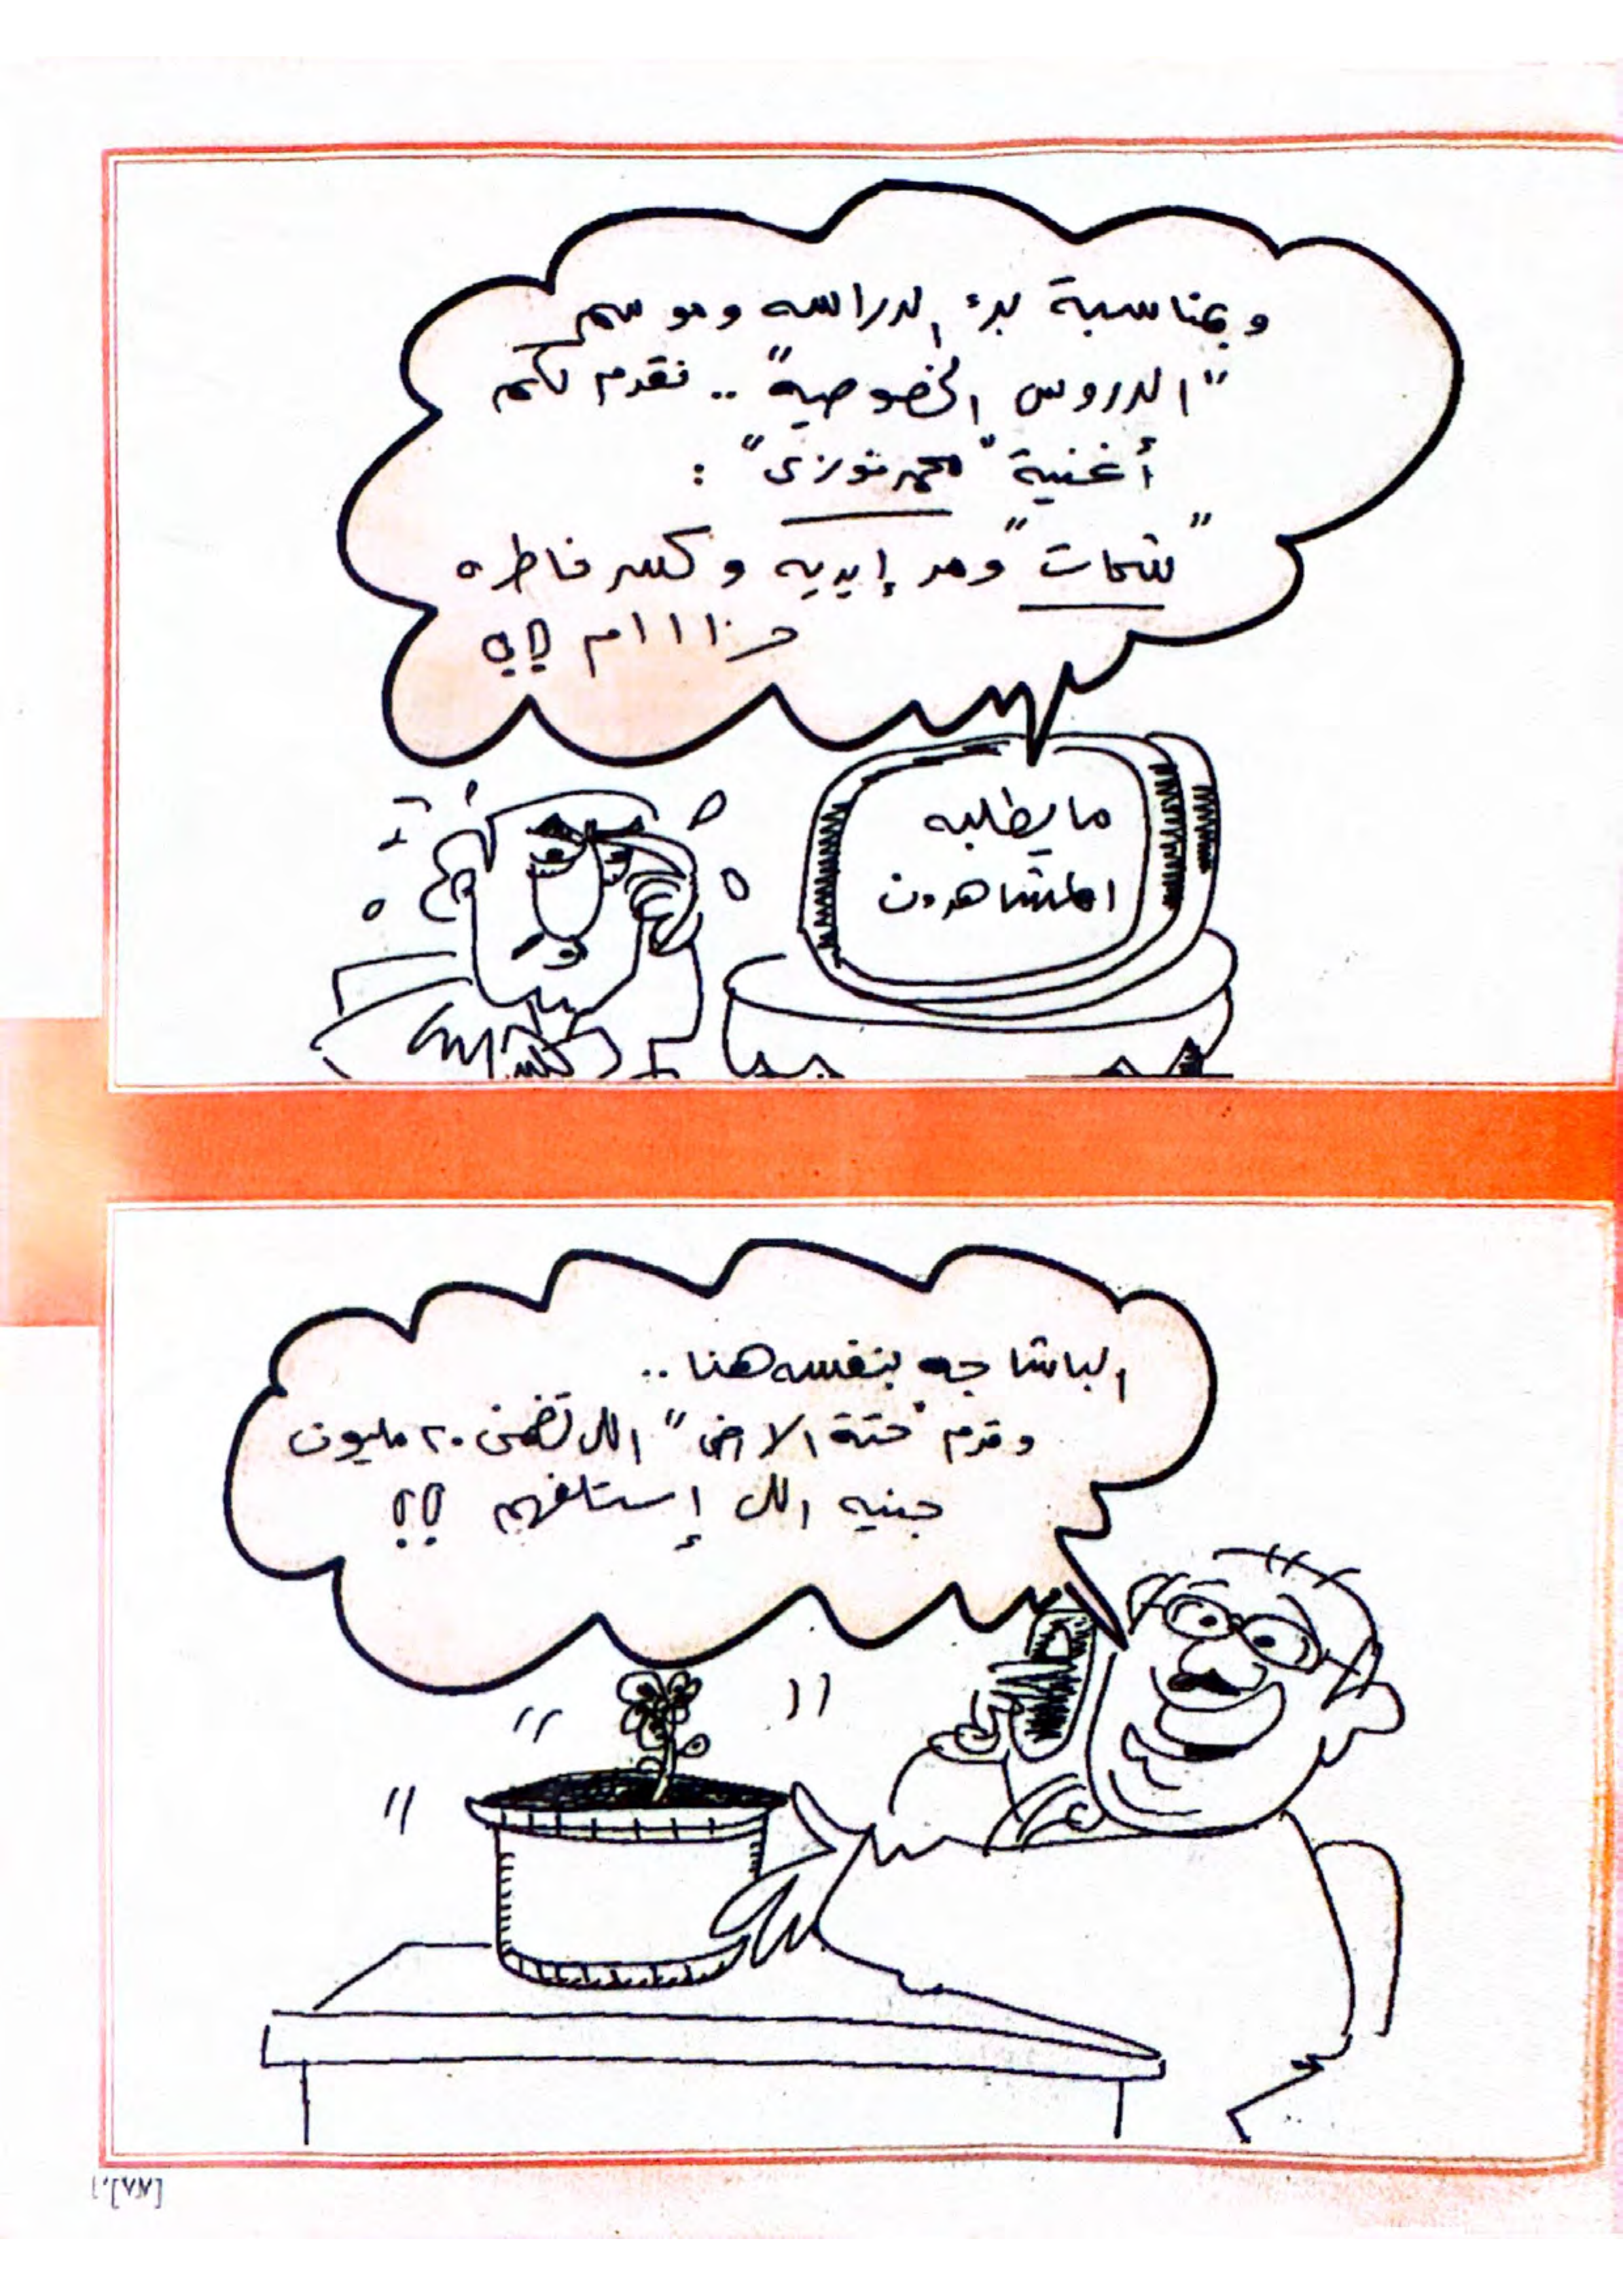 وبمناسبة بدء الدراسه وموسم
"الدروس الخصوصية" .. نقدم لكم
أغنية "محمد فوزى" :
"شحات" ومد إيديه وكسر خاطره
حرااام !!؟؟
ما يطلبه
المشاهدون
الباشا جه بنفسه هنا ..
وقدم "حتة الارض" اللى تضمن ٢٠ مليون
جنيه اللى إستلفهم !!؟؟